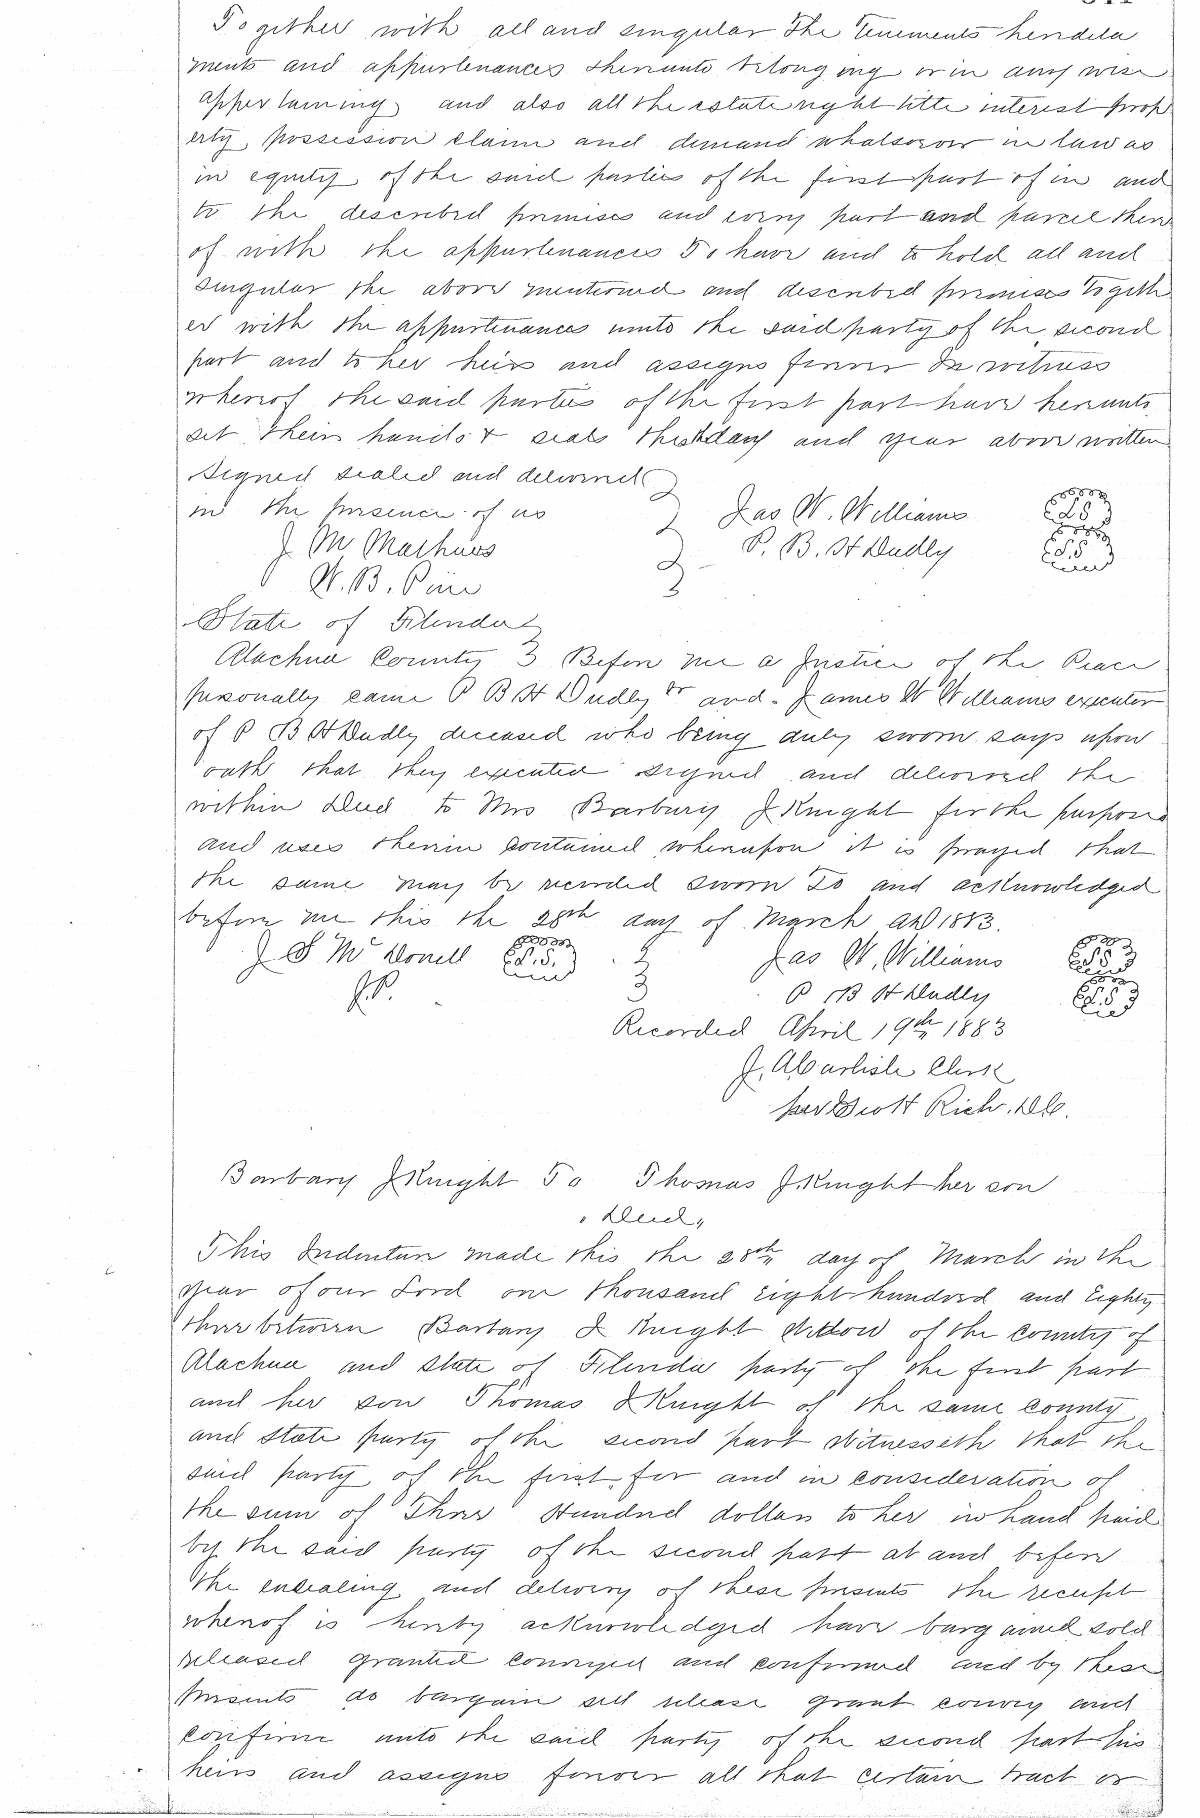 Together with all and singular the Tenements heredita
ments and appurtenances thereunto belonging or in any wise
appertaining and also all the estate right title interest prop
erty possession claim and demand whatsoever in law as
in equity of the said parties of the first part of in and
to the described premises and every part and parcel there
of with the appurtenances To have and to hold all and
singular the above mentioned and described premises togeth
er with the appurtenances unto the said party of the second
part and to her heirs and assigns forever In witness
whereof the said parties of the first part have hereunto
set their hands & seals the day and year above written
Signed sealed and delivered
in the presence of us Jas W. Williams L S
J M Mathews P. B. H Dudly L.S
W. B. Pine
State of Florida
Alachua County Before me a Justice of the Peace
personally came P B H Dudly Jr and James W Williams executor
of P B H Dudly deceased who being duly sworn says upon
oath that they executed signed and delivered the
within Deed to Mrs Barbary J Knight for the purposes
and uses therein contained whereupon it is prayed that
the same may be recorded sworn to and acknowledged
before me this the 28th day of March AD 1883.
J S McDonell L.S. Jas W. Williams L S
J.P. P B H Dudly L.S
Recorded April 19th 1883
J. A Carlisle Clerk
per Scott Rich. D.C.
Barbary J Knight To Thomas J. Knight her son
"Deed"
This Indenture made this the 28th day of March in the
year of our Lord one thousand Eight hundred and Eighty
three between Barbary J Knight Widow of the County of
Alachua and State of Florida party of the first part
and her son Thomas J Knight of the same county
and state party of the second part Witnesseth that the
said party of the first for and in consideration of
the sum of Three Hundred dollars to her in hand paid
by the said party of the second part at and before
the ensealing and delivery of these presents the receipt
whereof is hereby acknowledged have bargained sold
released granted conveyed and confirmed and by these
presents do bargain sell release grant convey and
confirm unto the said party of the second part his
heirs and assigns forever all that certain tract or